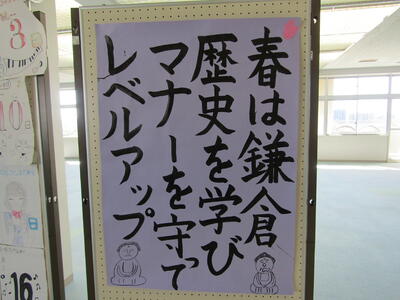 春は鎌倉
歴史を学び
マナーを守って
レベルアップ
3
10日
日
16